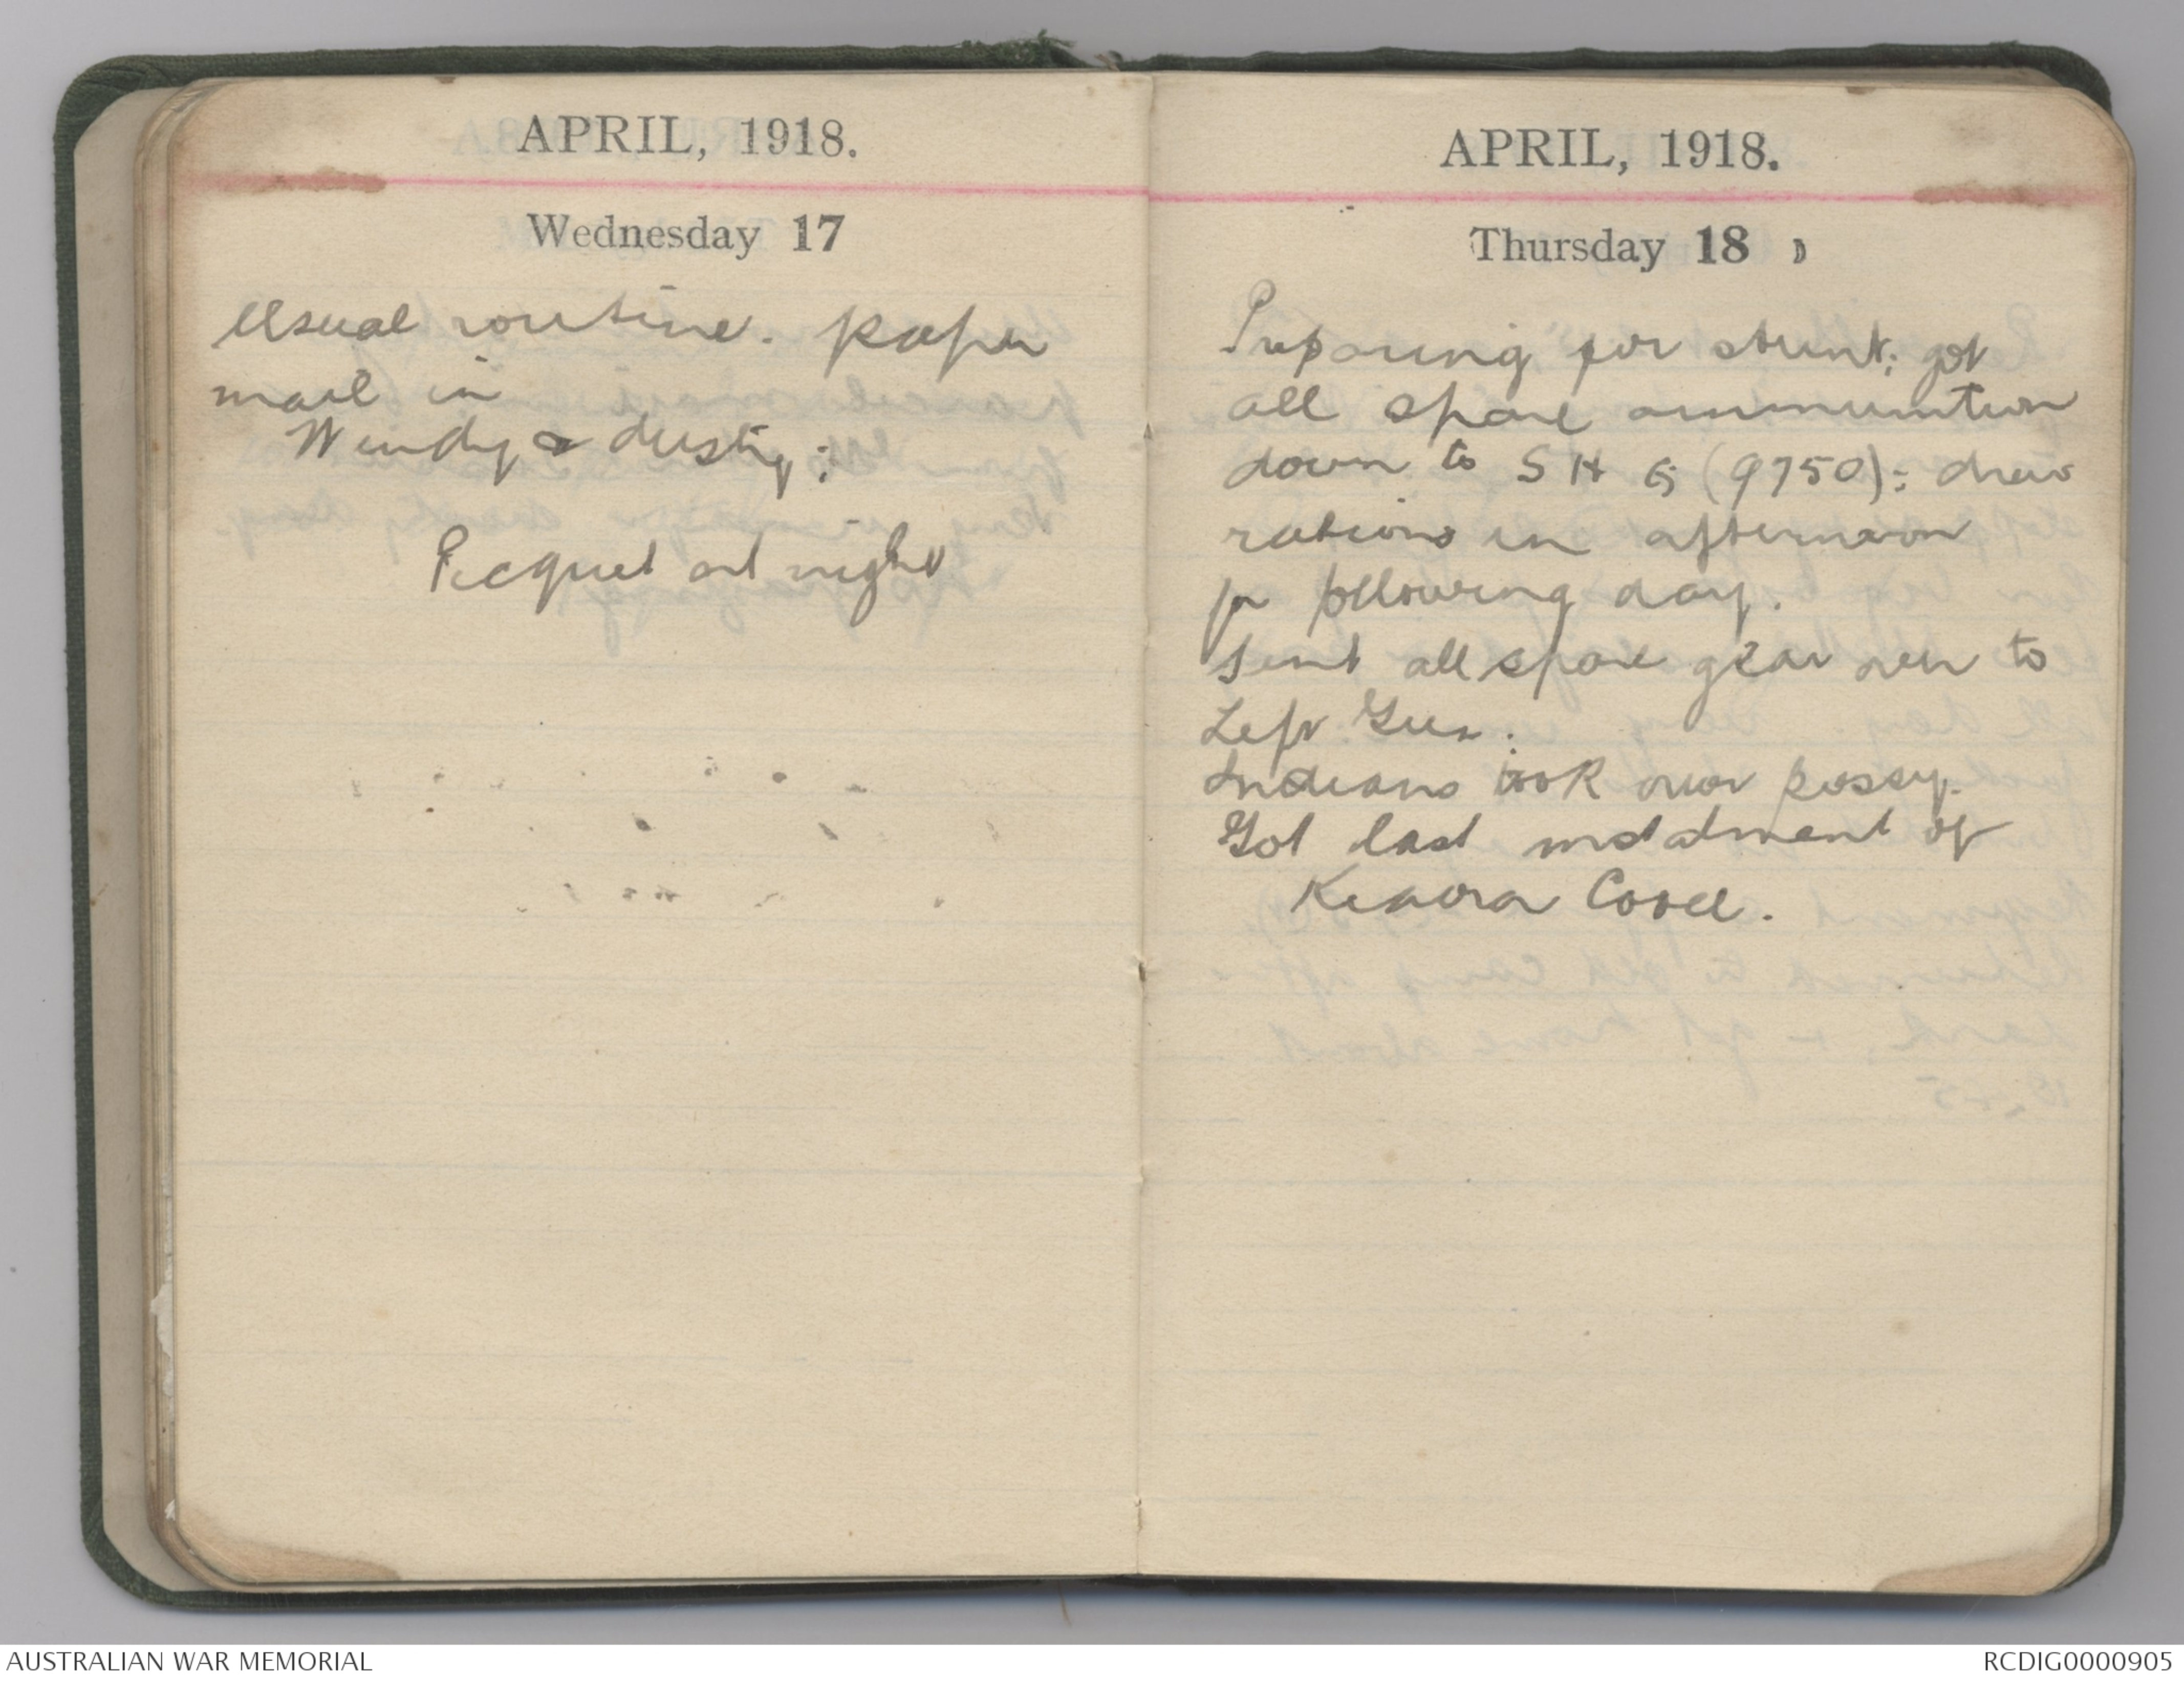 APRIL, 1918.
Wednesday 17
Usual routine. paper
mail in
Windy & dusty;
Picquet at night
APRIL, 1918.
Thursday 18
Preparing for stunt; got
all spare ammunition
down to S H Q (9750); drew
rations in afternoon
for following day.
Sent all spare gear over to
Left Gun.
Indians took over possy.
Got last instalment of
Keaora Cooee.
AUSTRALIAN WAR MEMORIAL
RCDIG0000905